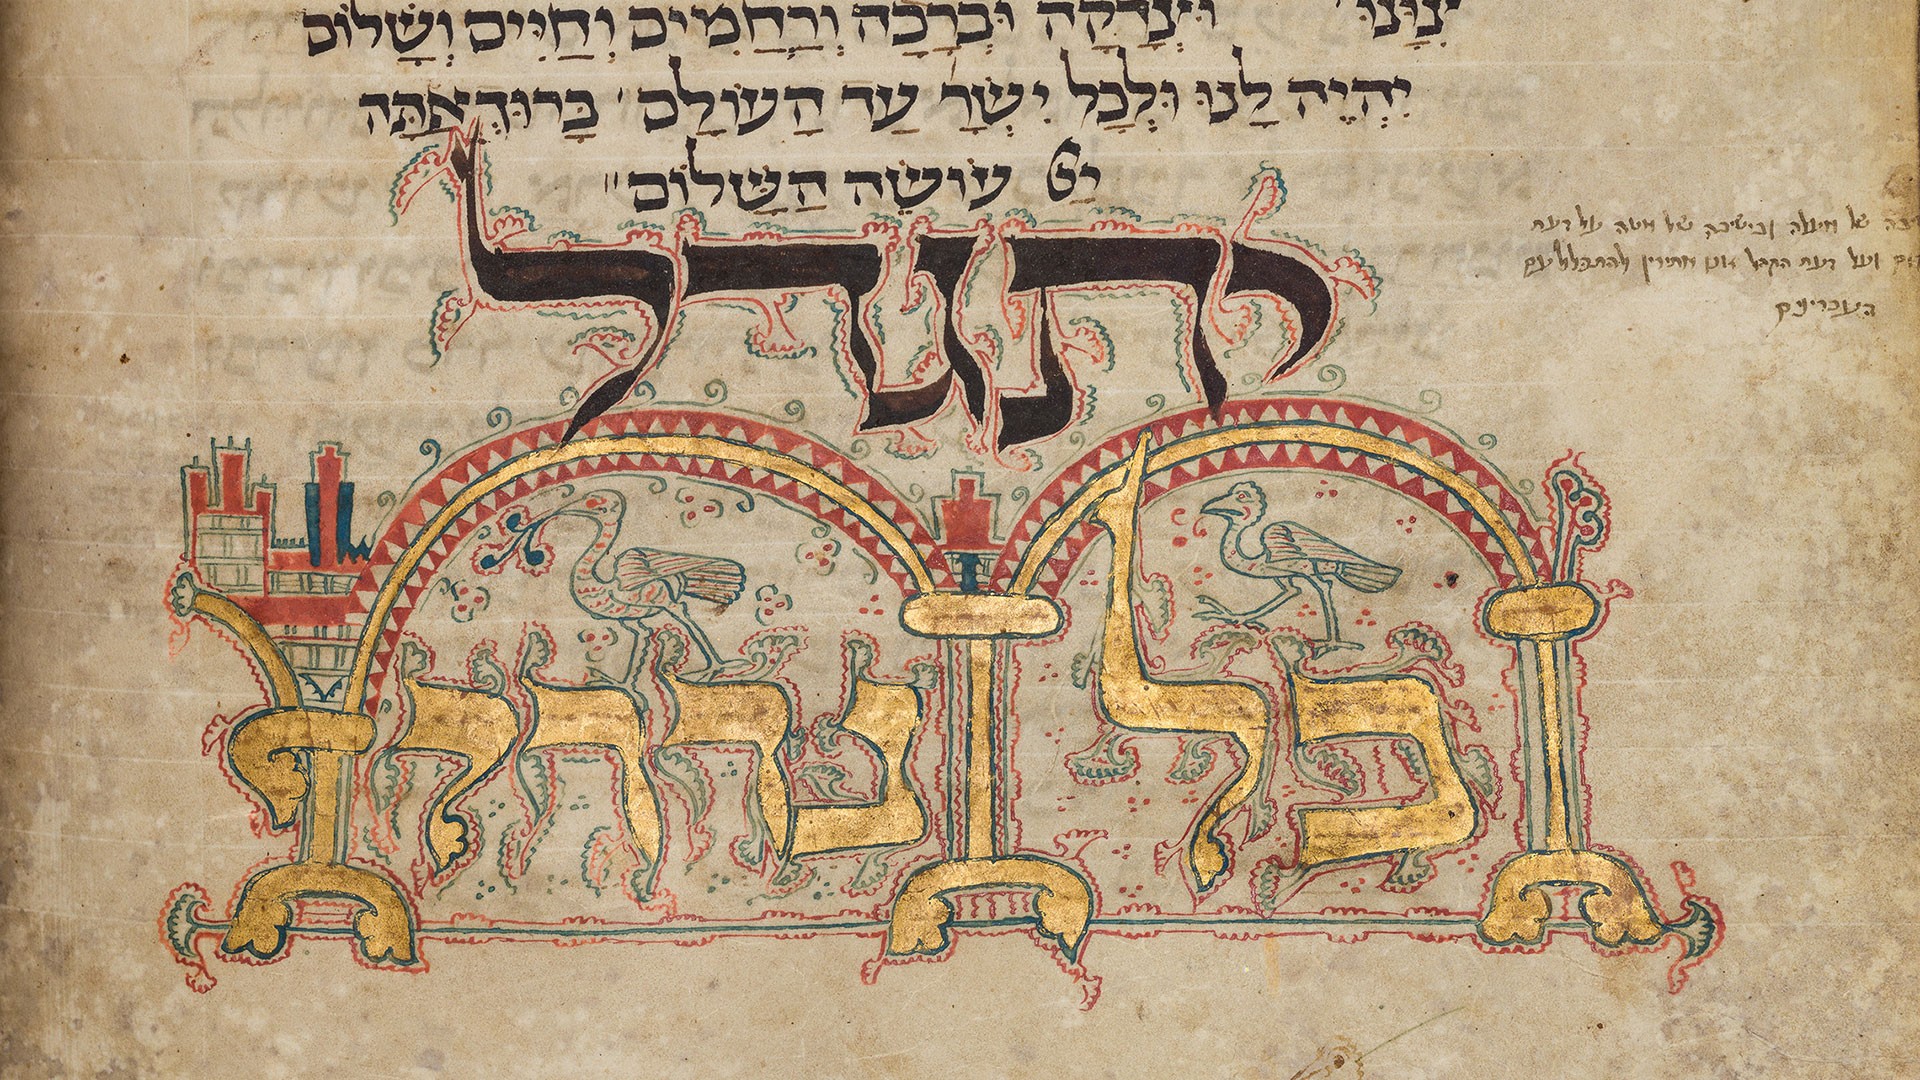 וּצְדָקָה וּבְרָכָה וְרַחֲמִים וְחַיִּים וְשָׁלוֹם
יִהְיֶה לָנוּ וּלְכָל יִשְׂרָ' עַד הָעוֹלָם ' בָּרוּךְ אַתָּה
יְיָ עוֹשֶׂה הַשָּׁלוֹם"
יתגדל
כל נדרי
של מעלה ובישיבה של מטה על דעת
ועל דעת הקהל אנו מתירין להתפלל עם
העבריינים